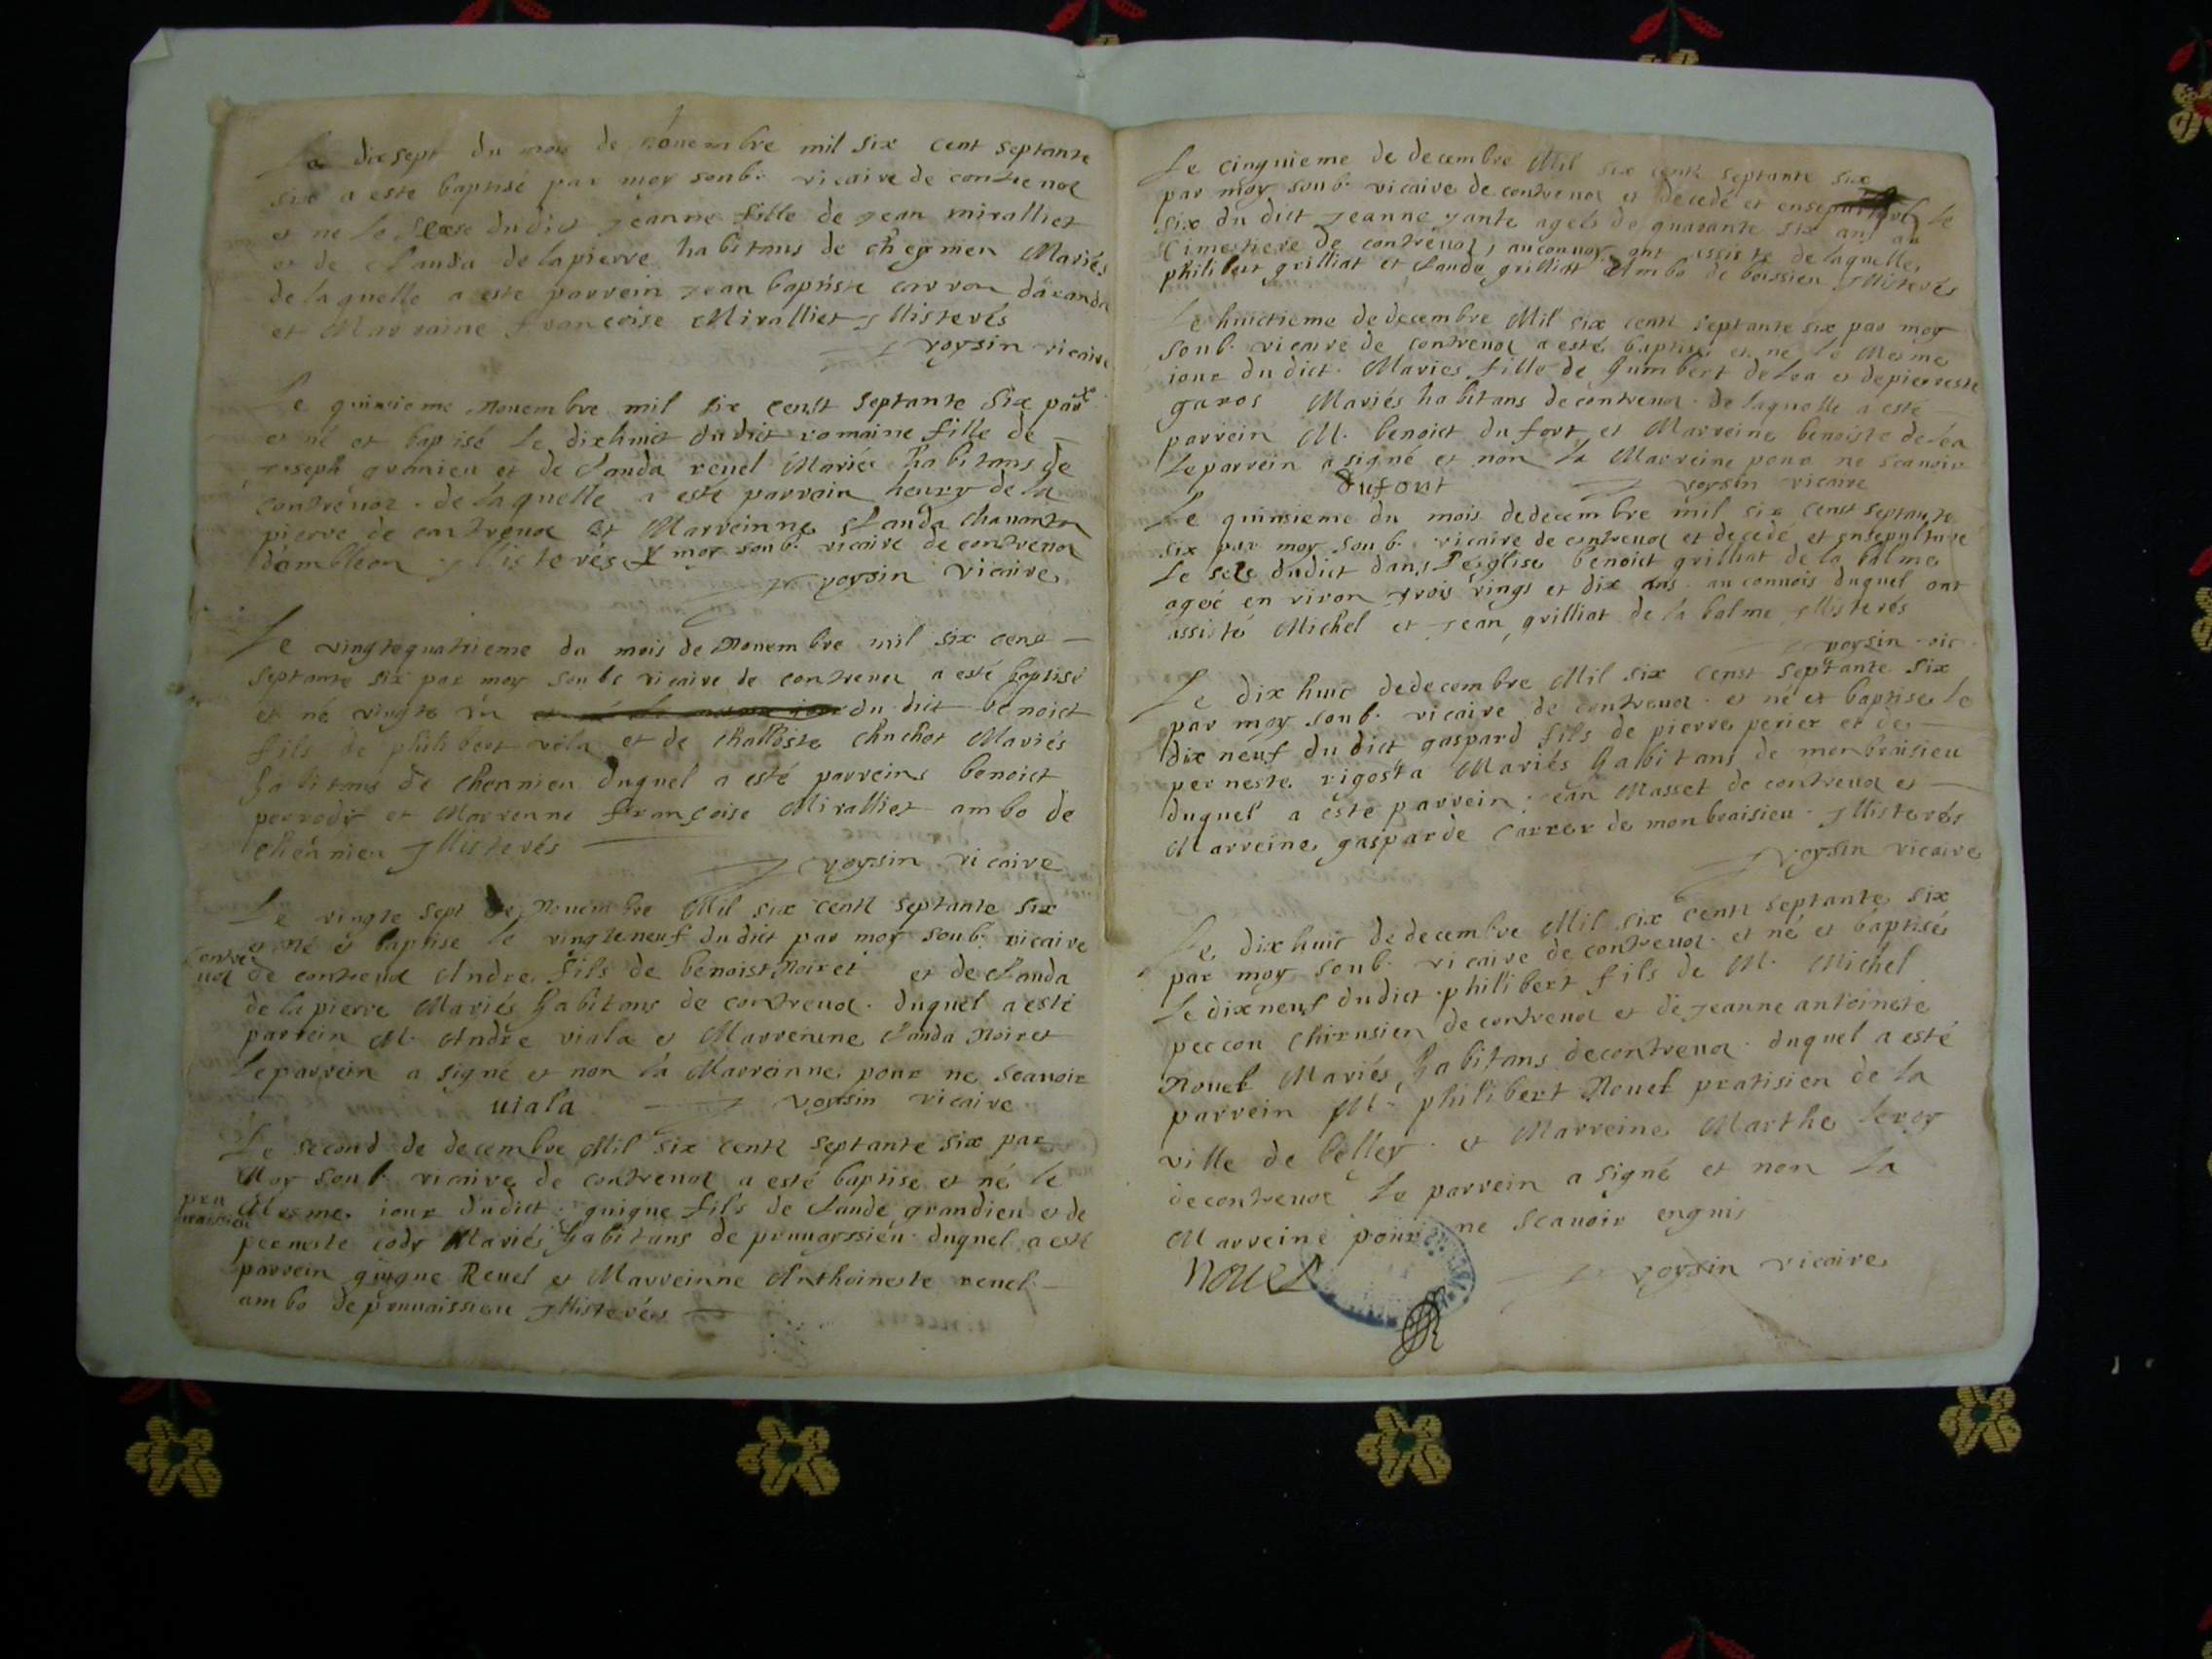 Le dixsept du mois de nouembre mil six cent septante
six a este baptisé par moy soub. vicaire de contreuoz
et ne le du dict jeanne fille de jean miralliet
et de clauda delapierre habitans de Mariés
delaquelle a este parrein jean baptiste
et Marraine françoise Miralliet Illiterés
voysin vicaire
Le quinsieme nouembre mil six cenlt septante six par
et né et baptisé le dixhuict dudict romaine fille de
joseph granieu et de clauda reuel Mariés habitans de
contreuoz. de laquelle a este parrein henry de la
pierre de contreuoz et Marreinne clauda
d'ambleon Illiterés moy soub. vicaire de contreuoz
voysin vicaire
Le vingtequatrieme du mois de nouembre mil six cenlt
septante six par moy soubs vicaire de contreuoz a esté baptisé
et né vingte un du dict benoict
fils de philibert et de Mariés
habitans de duquel a esté parreins benoict
et Marrenne françoise Miralliet ambo de
Illiterés
voysin vicaire
Le vingte sept de Nouembre Mil six centz septante six
et né et baptise le vingteneuf dudict par moy soub. vicaire
contre
uoz de contreuoz Andre fils de benoist Noiret et de clauda
de lapierre Mariés habitans de contreuoz. duquel a esté
parrein M. Andre viala et Marreinne clauda Noiret
le parrein a signé et non la Marreinne pour ne scauoir
uiala voysin vicaire
Le second de decembre Mil six centz septante six par
Moy soub. vicaire de contreuoz a esté baptisé et né le
Mesme iour dudict guigue fils de claude grandieu et de
pernette cody Mariés habitans de duquel a esté
parrein guigue Reuel et Marreinne Anthoineste reuel
ambo de Illiterés
Le cinquieme de decembre Mil six centz septante six
par moy soub. vicaire de contreuoz et decedé et le
six du dict jeanne agée de quarante six ans au
Cimestiere de contreuoz, au conuoy ont assisté delaquelle
philibert grilliat et claude grilliat ambo de boissieu Illiterés
Le huictieme de decembre Mil six centz septante six par moy
soub. vicaire de contreuoz a esté baptisée et né le Mesme
iour du dict. Maries fille de humbert delea et depierreste
garos Mariés habitans decontreuoz. de laquelle a esté
parrein M. benoict du fort et Marreine benoiste deléa
Le parrein a signé et non la Marreine pour ne scauoir
dufort voysin vicaire
Le quinsieme du mois dedecembre mil six cenlt septante
six par moy soub. vicaire de contreuoz et decedé et ensepulture
Le dudict dans l'eglise benoict grilliat de la balme
ageé en viron trois vings et dix ans. au connois duquel ont
assisté Michel et jean grilliat de la balme Illiterés
voysin vic
Le dix huic dedecembre Mil six cenlt septante six
par moy soub. vicaire de contreuoz. et né et baptise le
dix neuf du dict gaspard fils de pierre perier et de
perneste rigosta Mariés habitans de monbraisieu
duquel a este parrein jean Masset de contreuoz et
Marreine gasparde Carrer de monbraisieu. Illiterés
voysin vicaire
Le dixhuic dedecembre Mil six centz septante six
par moy soub. vicaire de contreuoz. et né et baptisé
Le dixneuf dudict. philibert fils de M. Michel
peccou chirusien de contreuoz et de jeanne antoinete
Nouel Mariés habitans decontreuoz. duquel a esté
parrein M. philibert Nouel pratisien de la
ville de belley. et Marreine Marthe leroy
decontreuoz le parrein a signé et non la
Marreine pour ne scauoir enquis
Nouel voysin vicaire